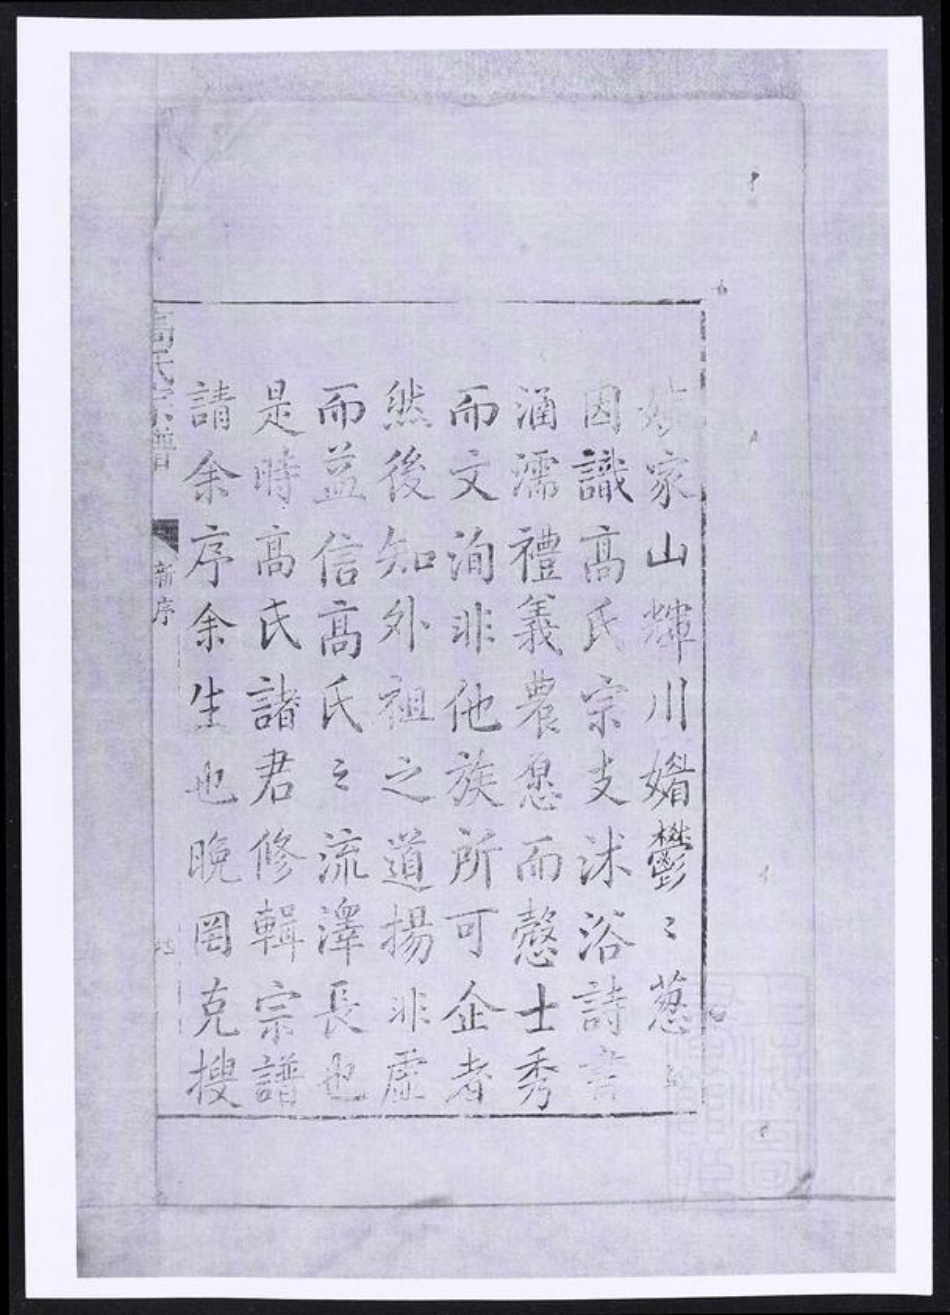 家山輝川媚鬱〻葱
因識高氏宗支沭浴詩書
涵濡禮義農愿而慤士秀
而文洵非他族所可企者
然後知外祖之道揚非虛
而益信高氏〻流澤長也
是時高氏諸君修輯宗譜
請余序余生也晚罔克搜
高氏宗譜
新序